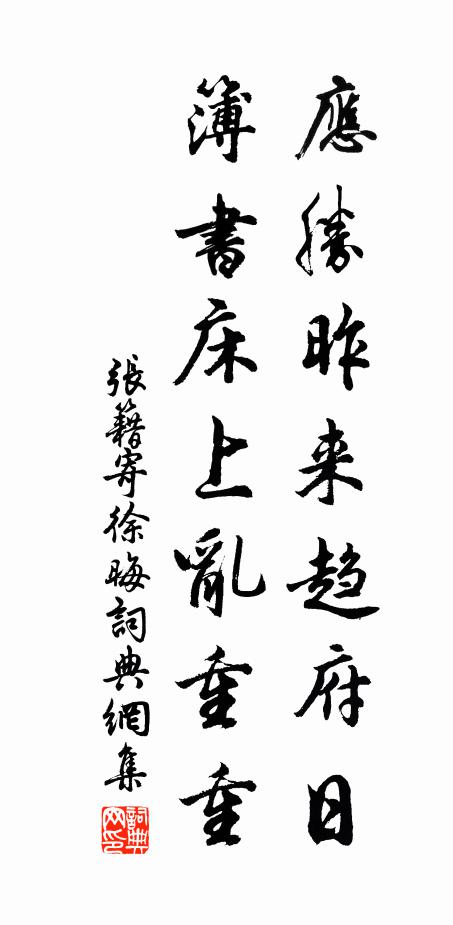 應勝昨来趋府日
簿書床上亂重重
張籍寄徐晦詞典網集
詞典网印